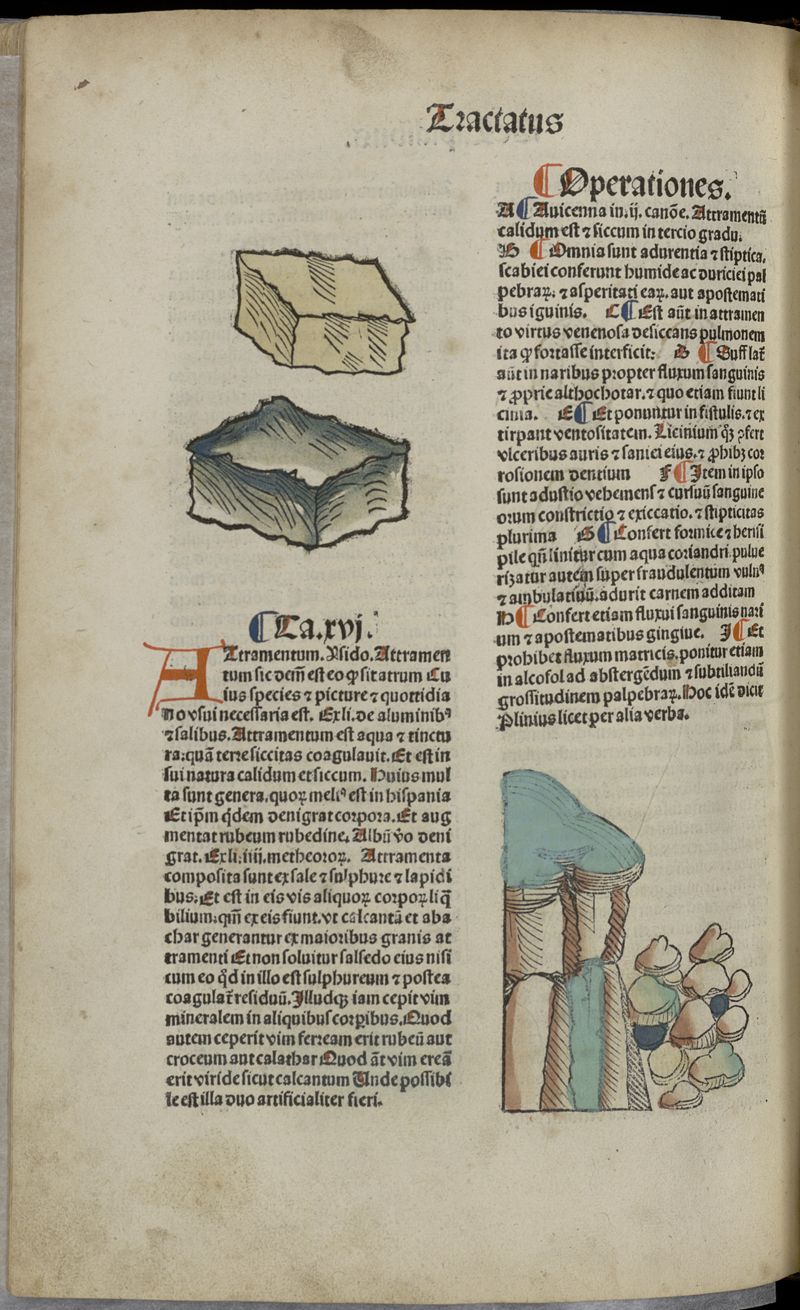 Tractatus
¶Ca.xvj.
ATtramentum. Ysido. Attramen
tum sic dcm̄ est eo ꝙ sit atrum Cu
ius species ⁊ picture ⁊ quottidia
no vsui necessaria est. Ex li. de aluminibꝰ
⁊ salibus. Attramentum est aqua ⁊ tinctu
ra: quā terre siccitas coagulauit. Et est in
sui natura calidum et siccum. Huius mul
ta sunt genera. quoꝝ meliꝰ est in hispania
Et ip̄m q̇dem denigrat corpora. Et aug
mentat rubeum rubedine. Albū v̊o deni
grat. Ex li. iiij. metheoroꝝ. Attramenta
composita sunt ex sale ⁊ sulphure ⁊ lapidi
bus. Et est in eis vis aliquoꝝ corpoꝝ liq̄
bilium. qm̄ ex eis fiunt. vt calcantū et aba
char generantur ex maioribus granis at
tramenti Et non soluitur salsedo eius nisi
cum eo qd̓ in illo est sulphureum ⁊ postea
coagulat̄ residuū. Illudqꝫ iam cepit vim
mineralem in aliquibus corꝑibus. Quod
autem ceperit vim ferream erit rubeū aut
croceum aut calathar Quod āt vim ereā
erit viride sicut calcantum Unde possibi
le est illa duo artificialiter fieri.
¶Operationes.
A ¶Auicenna in. ij. canōe. Attramentū
calidum est ⁊ siccum in tercio gradu.
B ¶Omnia sunt adurentia ⁊ stiptica,
scabiei conferunt humide ac duriciei pal
pebraꝝ. ⁊ asperitati eaꝝ. aut apostemati
bus iguinis. C ¶Est aūt in attramen
to virtus venenosa desiccans pulmonem
ita ꝙ fortasse interficit: D ¶Sufflat̄
aūt in naribus propter fluxum sanguinis
⁊ ꝓprie althochotar. ⁊ quo etiam fiunt li
cinia. E ¶Et ponuntur in fistulis. ⁊ ex
tirpant ventositatem. Licinium qꝫ ꝯfert
vlceribus auris ⁊ saniei eius. ⁊ ꝓhibꝫ cor
rosionem dentium F ¶Item in ipso
sunt adustio vehemens ⁊ cursuū sanguine
orum constrictio ⁊ exiccatio. ⁊ stipticitas
plurima G ¶Confert formice ⁊ herisi
pile qn̄ linitur cum aqua coriandri. pulue
rizatur autem super fraudulentum vulnꝰ
⁊ ambulatiuū. adurit carnem additam
H ¶Confert etiam fluxui sanguinis nari
um ⁊ apostematibus gingiue. I ¶Et
prohibet fluxum matricis. ponitur etiam
in alcofol ad abstergēdum ⁊ subtiliandū
grossitudinem palpebraꝝ. Hoc idē dicit
Plinius licet per alia verba.